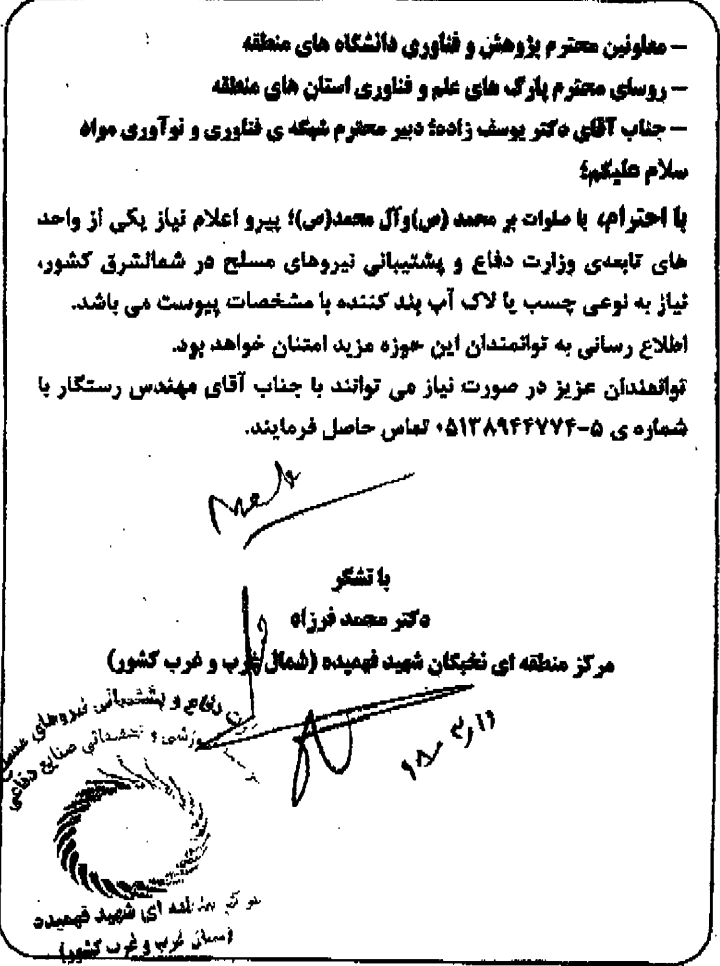 – معاونین محترم پژوهش و فناوری دانشگاه های منطقه
– روسای محترم پارک های علم و فناوری استان های منطقه
– جناب آقای دکتر یوسف زاده؛ دبیر محترم شبکه ی فناوری و نوآوری مواد
سلام علیکم؛
با احترام، با صلوات بر محمد (ص) وآل محمد(ص)؛ پیرو اعلام نیاز یکی از واحد
های تابعه‌ی وزارت دفاع و پشتیبانی نیروهای مسلح در شمالشرق کشور،
نیاز به نوعی چسب یا لاک آب بند کننده با مشخصات پیوست می باشد.
اطلاع رسانی به توانمندان این حوزه مزید امتنان خواهد بود.
توانمندان عزیز در صورت نیاز می توانند با جناب آقای مهندس رستگار با
شماره ی ۵-۰۵۱۳۸۹۴۴۷۷۴ تماس حاصل فرمایند.
با تشکر
دکتر محمد فرزاد
مرکز منطقه ای نخبگان شهید فهمیده (شمال غرب و غرب کشور)
دفاع و پشتیبانی نیروهای
صنایع دفاعی
ای شهید فهمیده
غرب و غرب کشور)